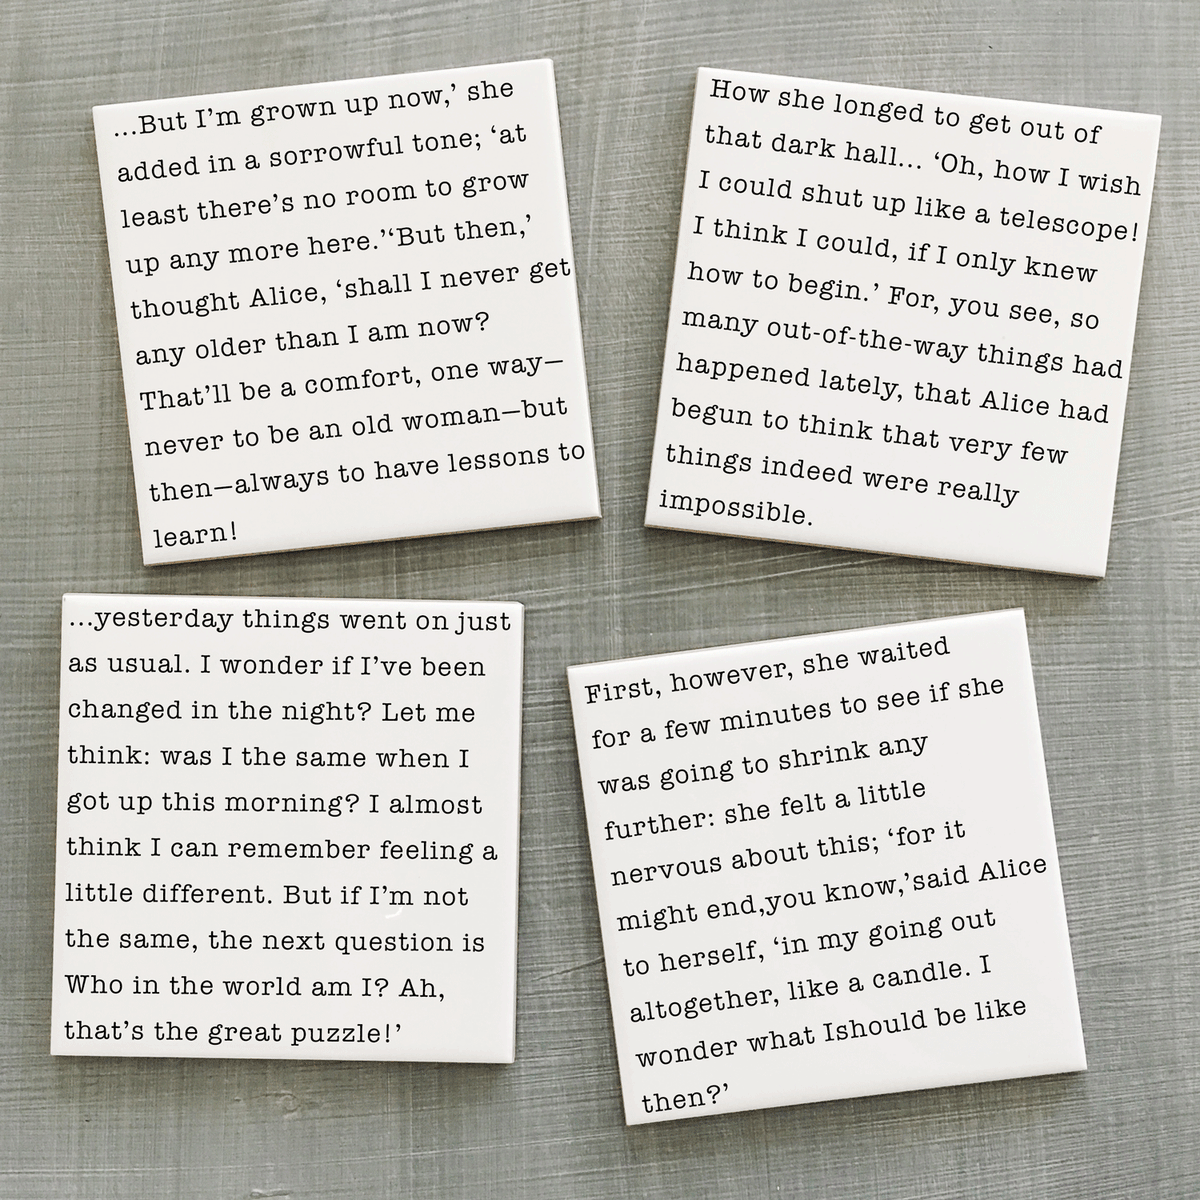 ...But I’m grown up now,’ she
added in a sorrowful tone; ‘at
least there’s no room to grow
up any more here.’‘But then,’
thought Alice, ‘shall I never get
any older than I am now?
That’ll be a comfort, one way—
never to be an old woman—but
then—always to have lessons to
learn!
How she longed to get out of
that dark hall... ‘Oh, how I wish
I could shut up like a telescope!
I think I could, if I only knew
how to begin.’ For, you see, so
many out-of-the-way things had
happened lately, that Alice had
begun to think that very few
things indeed were really
impossible.
...yesterday things went on just
as usual. I wonder if I’ve been
changed in the night? Let me
think: was I the same when I
got up this morning? I almost
think I can remember feeling a
little different. But if I’m not
the same, the next question is
Who in the world am I? Ah,
that’s the great puzzle!’
First, however, she waited
for a few minutes to see if she
was going to shrink any
further: she felt a little
nervous about this; ‘for it
might end,you know,’said Alice
to herself, ‘in my going out
altogether, like a candle. I
wonder what Ishould be like
then?’